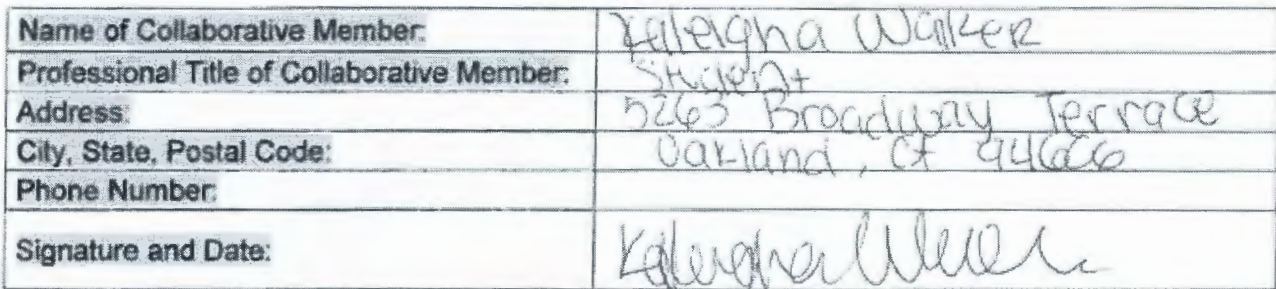 Name of Collaborative Member: Kaleigha Walker
Professional Title of Collaborative Member: Student
Address: 5263 Broadway Terrace
City, State, Postal Code: Oakland, CA
Phone Number:
Signature and Date: Kaleigha